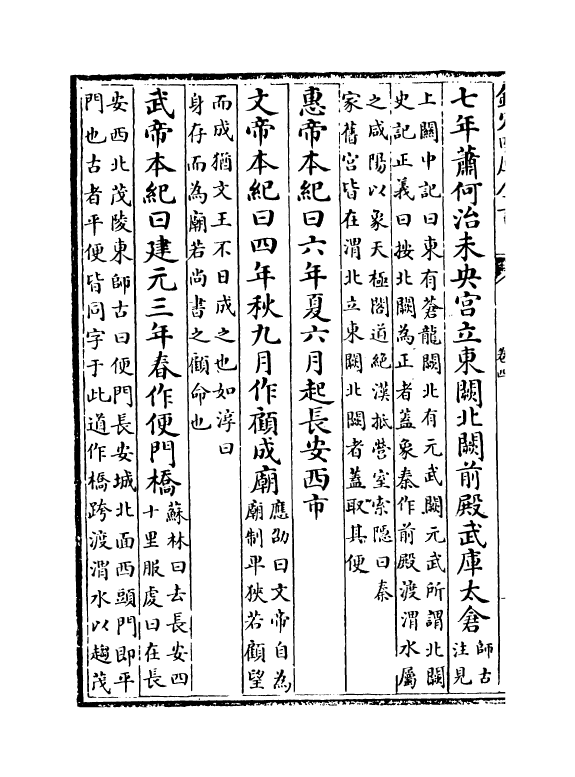 七年蕭何治未央宮立東闕北闕前殿武庫太倉師古
注見
上關中記曰東有蒼龍闕北有元武闕元武所謂北闕
史記正義曰按北闕為正者蓋象秦作前殿渡渭水屬
之咸陽以象天極閣道絕漢抵營室索隱曰秦
家舊宮皆在渭北立東闕北闕者蓋取其便
惠帝本紀曰六年夏六月起長安西市
文帝本紀曰四年秋九月作顧成廟應劭曰文帝自為
廟制平狹若顧望
而成猶文王不日成之也如淳曰
身存而為廟若尚書之顧命也
武帝本紀曰建元三年春作便門橋蘇林曰去長安四
十里服虔曰在長
安西北茂陵東師古曰便門長安城北面西頭門即平
門也古者平便皆同字于此道作橋跨渡渭水以趨茂